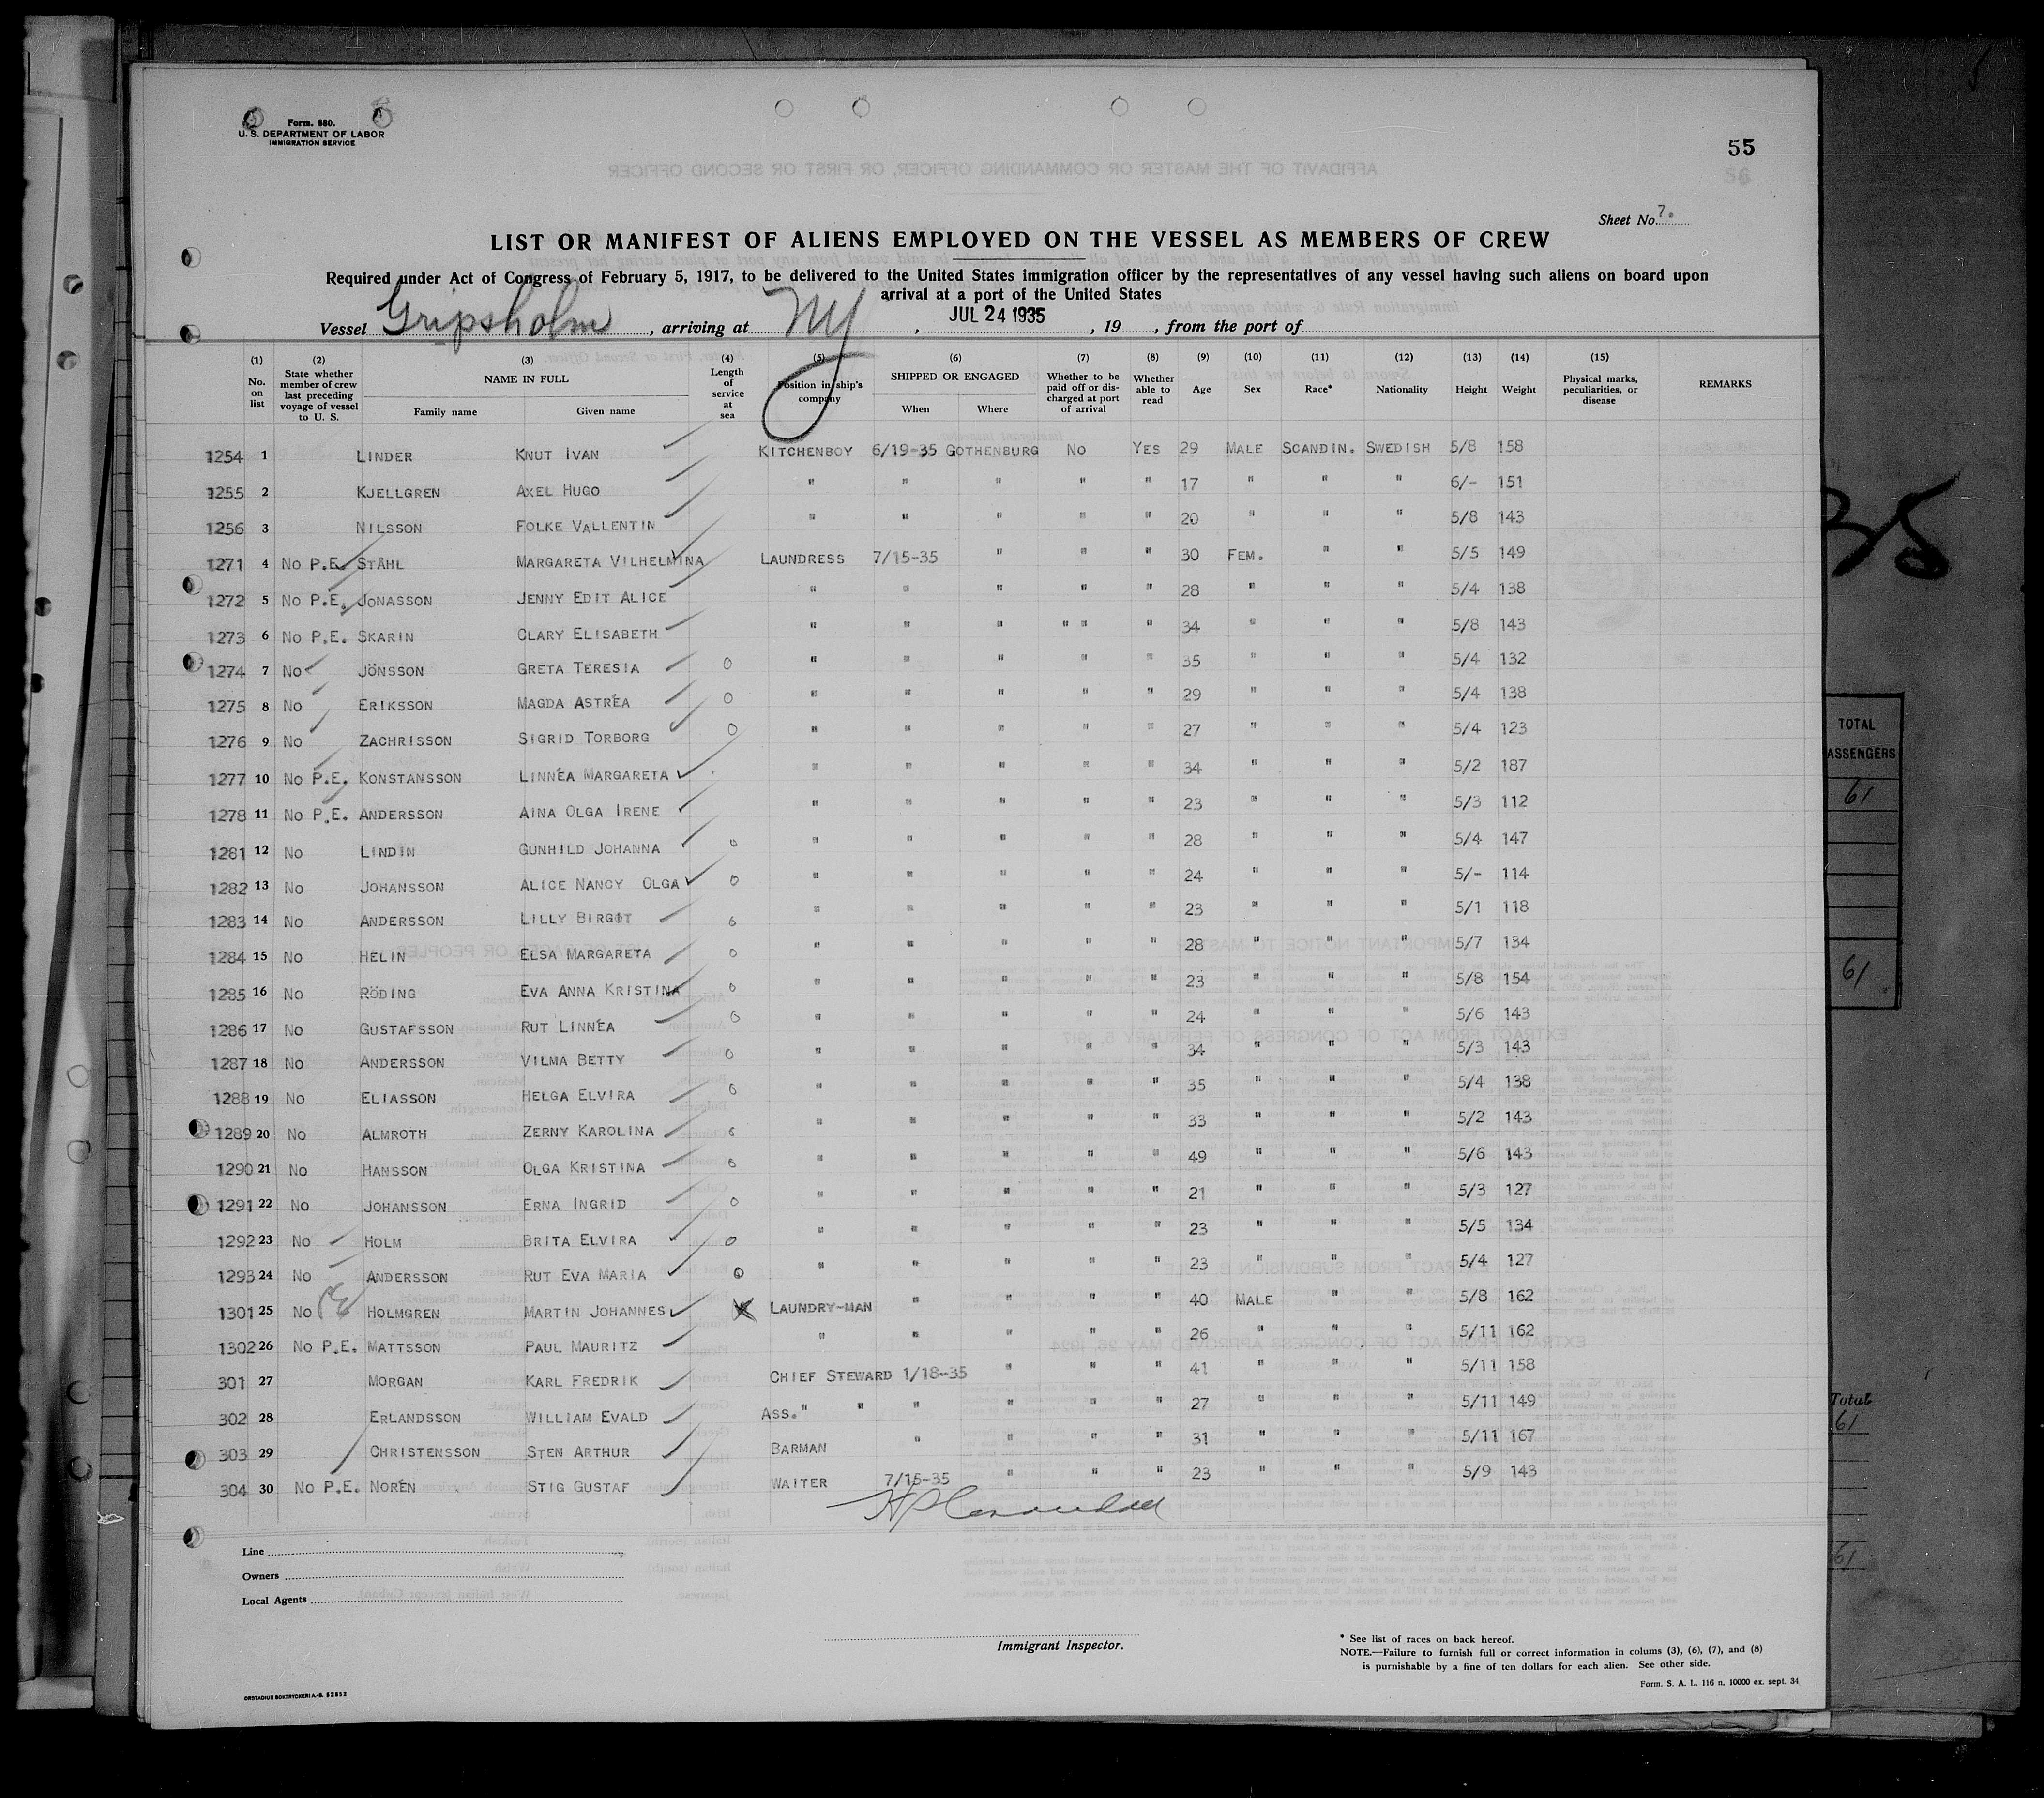 Form. 680.
U. S. DEPARTMENT OF LABOR
IMMIGRATION SERVICE
55
56
Sheet No. 7.
LIST OR MANIFEST OF ALIENS EMPLOYED ON THE VESSEL AS MEMBERS OF CREW
Required under Act of Congress of February 5, 1917, to be delivered to the United States immigration officer by the representatives of any vessel having such aliens on board upon
arrival at a port of the United States
Vessel Gripsholm, arriving at NY, JUL 24 1935, 19 , from the port of
(1) No. on list (2) State whether member of crew last preceding voyage of vessel to U. S. (3) NAME IN FULL Family name Given name (4) Length of service at sea (5) Position in ship's company (6) SHIPPED OR ENGAGED When Where (7) Whether to be paid off or discharged at port of arrival (8) Whether able to read (9) Age (10) Sex (11) Race* (12) Nationality (13) Height (14) Weight (15) Physical marks, peculiarities, or disease REMARKS
1254 1 LINDER KNUT IVAN KITCHENBOY 6/19-35 GOTHENBURG NO YES 29 MALE SCANDIN. SWEDISH 5/8 158
1255 2 KJELLGREN AXEL HUGO " " " " " 17 " " " 6/- 151
1256 3 NILSSON FOLKE VALLENTIN " " " " " 20 " " " 5/8 143
1271 4 NO P.E. STÅHL MARGARETA VILHELMINA LAUNDRESS 7/15-35 " " " 30 FEM. " " 5/5 149
1272 5 NO P.E. JONASSON JENNY EDIT ALICE " " " " " 28 " " " 5/4 138
1273 6 NO P.E. SKARIN CLARY ELISABETH " " " " " " 34 " " " 5/8 143
1274 7 NO JÖNSSON GRETA TERESIA 0 " " " " " 35 " " " 5/4 132
1275 8 NO ERIKSSON MAGDA ASTRÉA 0 " " " " " 29 " " " 5/4 138
1276 9 NO ZACHRISSON SIGRID TORBORG 0 " " " " " 27 " " " 5/4 123
1277 10 NO P.E. KONSTANSSON LINNÉA MARGARETA " " " " " 34 " " " 5/2 187
1278 11 NO P.E. ANDERSSON AINA OLGA IRENE " " " " " 23 " " " 5/3 112
1281 12 NO LINDIN GUNHILD JOHANNA 0 " " " " " 28 " " " 5/4 147
1282 13 NO JOHANSSON ALICE NANCY OLGA 0 " " " " " 24 " " " 5/- 114
1283 14 NO ANDERSSON LILLY BIRGIT 0 " " " " " 23 " " " 5/1 118
1284 15 NO HELIN ELSA MARGARETA 0 " " " " " 28 " " " 5/7 134
1285 16 NO RÖDING EVA ANNA KRISTINA 0 " " " " " 23 " " " 5/8 154
1286 17 NO GUSTAFSSON RUT LINNÉA 0 " " " " " 24 " " " 5/6 143
1287 18 NO ANDERSSON VILMA BETTY 0 " " " " " 34 " " " 5/3 143
1288 19 NO ELIASSON HELGA ELVIRA 0 " " " " " 35 " " " 5/4 138
1289 20 NO ALMROTH ZERNY KAROLINA 0 " " " " " 33 " " " 5/2 143
1290 21 NO HANSSON OLGA KRISTINA 0 " " " " " 49 " " " 5/6 143
1291 22 NO JOHANSSON ERNA INGRID 0 " " " " " 21 " " " 5/3 127
1292 23 NO HOLM BRITA ELVIRA 0 " " " " " 23 " " " 5/5 134
1293 24 NO ANDERSSON RUT EVA MARIA 0 " " " " " 23 " " " 5/4 127
1301 25 NO PE HOLMGREN MARTIN JOHANNES LAUNDRY-MAN " " " " 40 MALE " " 5/8 162
1302 26 NO P.E. MATTSSON PAUL MAURITZ " " " " " 26 " " " 5/11 162
301 27 MORGAN KARL FREDRIK CHIEF STEWARD 1/18-35 " " " 41 " " " 5/11 158
302 28 ERLANDSSON WILLIAM EVALD ASS. " " " " " " 27 " " " 5/11 149
303 29 CHRISTENSSON STEN ARTHUR BARMAN " " " " 31 " " " 5/11 167
304 30 NO P.E. NORÉN STIG GUSTAF WAITER 7/15-35 " " " 23 " " " 5/9 143
Line
Owners
Local Agents
Immigrant Inspector.
* See list of races on back hereof.
NOTE.—Failure to furnish full or correct information in colums (3), (6), (7), and (8)
is purnishable by a fine of ten dollars for each alien. See other side.
Form. S. A. L. 116 n. 10000 ex. sept. 34
ORSTADIUS BOKTRYCKERI A.-B. 52852
35
TOTAL
ASSENGERS
61
61
Total
61
61